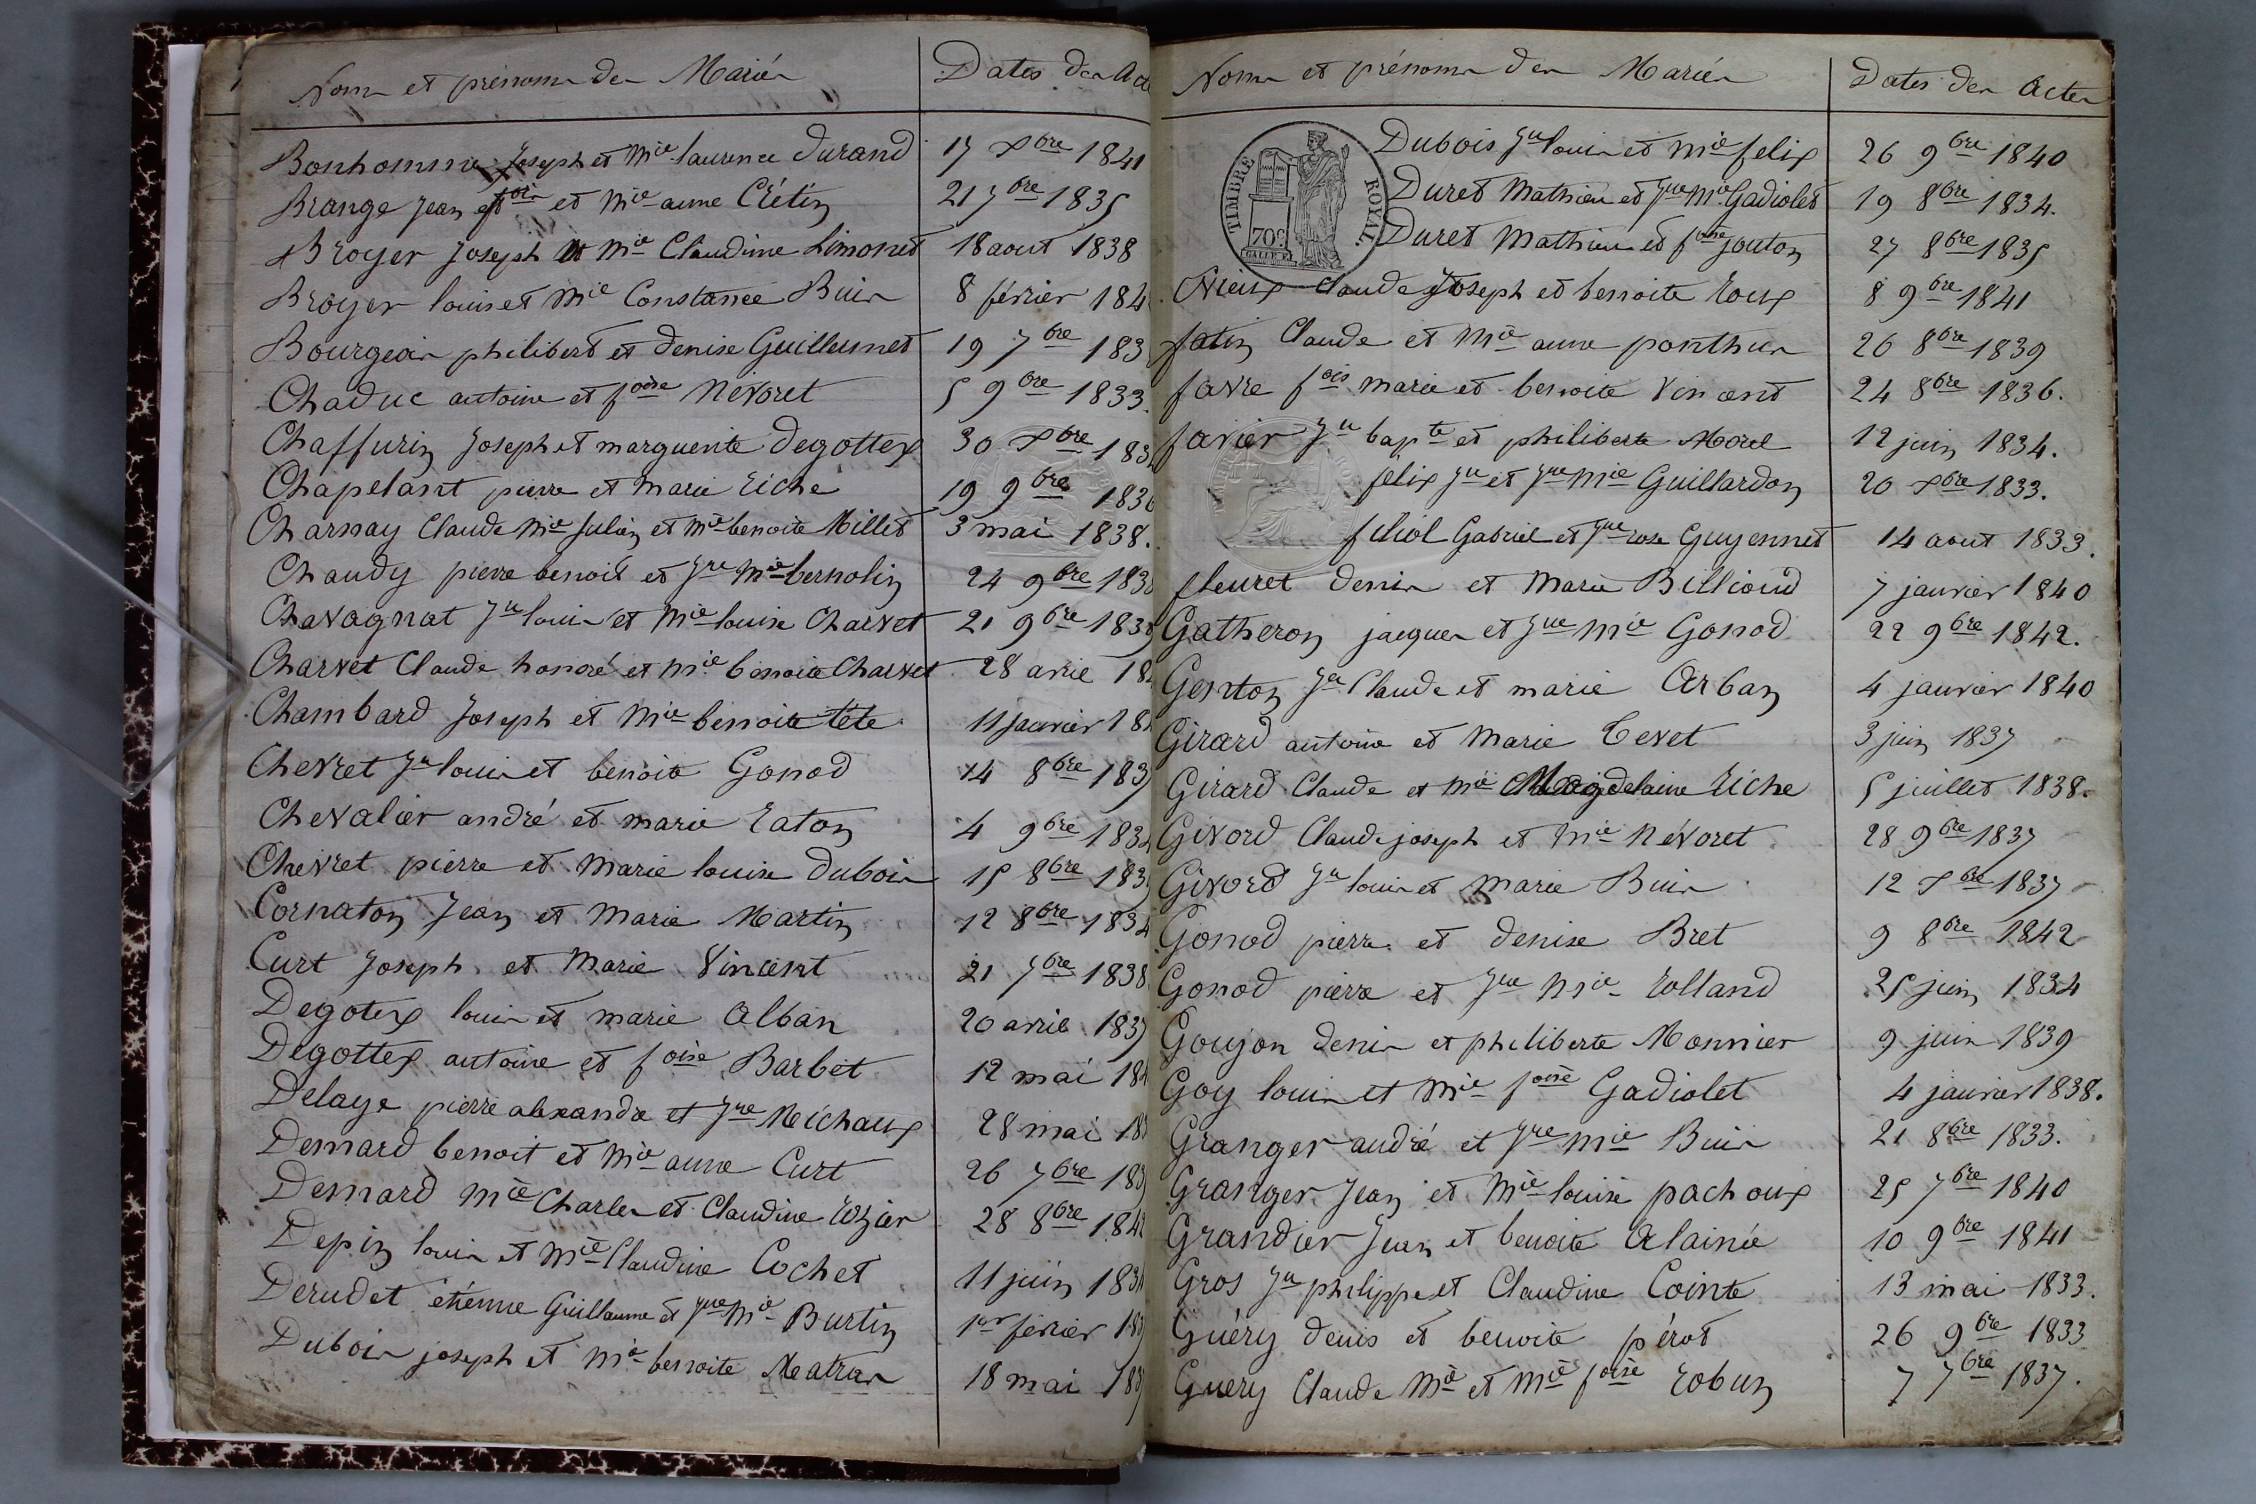 Noms et prénoms des Mariés
Dates des Act
Bonhomme Joseph et Mie laurence Durand 17 Xbre 1841
Brange Jean fois et Mie anne Crétin 21 7bre 1835
Broyer Joseph et Mie Claudine Limonet 18 aout 1838
Broyer louis et Mie Constance Buis 8 février 184
Bourgeois philibert et denise Guillermet 19 7bre 183
Chaduc antoine et foise Névoret 5 9bre 1833.
Chaffurin Joseph et marguerite Degottex 30 Xbre 183
Chapelant pierre et Marie Riche 19 9bre 1836
Charnay Claude Mie Julien et Mie benoite Millet 3 mai 1838.
Chaudy pierre benoit et Jne Mie bernolin 24 9bre 183
Chavagnat Jn louis et Mie louise Charvet 21 9bre 183
Charvet Claude honoré et Mie benoite Charvet 28 avril 18
Chambard Joseph et Mie benoite tête 11 janvier 18
Chevret Jn louis et benoite Gonod 14 8bre 183
Chevalier andré et marie Raton 4 9bre 183
Chevret pierre et Marie louise dubois 15 8bre 183
Cornaton Jean et Marie Martin 12 8bre 1834
Curt Joseph et Marie Vincent 21 7bre 1838
Degotex louis et marie Alban 20 avril 1837
Degottex antoine et foise Barbet 12 mai 184
Delaye pierre alexandre et Jne Michaux 28 mai 18
Demard benoit et Mie anne Curt 26 7bre 183
Demard Mie Charles et Claudine Rozier 28 8bre 184
Depin louis et Mie Claudine Cochet 11 juin 183
Derudet étienne Guillaume et Jne Mie Burtin 1er février 18
Dubois joseph et Mie benoite Matran 18 mai 18
Noms et prénoms des Mariés
Dates des Actes
TIMBRE ROYAL
70c
Dubois Jn louis et Mie felix 26 9bre 1840
Duret Mathieu et Jne Mie Gadiolet 19 8bre 1834.
Duret Mathieu et foise jouton 27 8bre 1835
Claude Joseph et benoite Roux 8 9bre 1841
fatin Claude et Mie anne ponthus 26 8bre 1839
favre fois marie et benoite Vincent 24 8bre 1836.
favier Jn bapte et philiberte Morel 12 juin 1834.
félix Jn et Jne Mie Guillardon 20 Xbre 1833.
filiol Gabriel et Jne rose Guyennet 14 aout 1833.
fleuret denis et Marie Billioud 7 janvier 1840
Gatheron jacques et Jne Mie Gonod 22 9bre 1842.
Genton Jn Claude et marie Arban 4 janvier 1840
Girard antoine et Marie Tevet 3 juin 1837
Girard Claude et Mie Magdelaine Riche 5 juillet 1838.
Givord Claude joseph et Mie Névoret 28 9bre 1837
Givord Jn louis et Marie Buis 12 Xbre 1837
Gonod pierre et denise Bret 9 8bre 1842
Gonod pierre et Jne Mie Rolland 25 juin 1834
Goujon denis et philiberte Monnier 9 juin 1839
Goy louis et Mie foise Gadiolet 4 janvier 1838.
Granger andré et Jne Mie Buis 21 8bre 1833.
Granger Jean et Mie louise pachoux 25 7bre 1840
Grandier Jean et benoite Alainée 10 9bre 1841
Gros Jn philippe et Claudine Cointe 13 mai 1833.
Guéry denis et benoite pérot 26 9bre 1833
Guery Claude Mie et Mie foise Robun 7 7bre 1837.